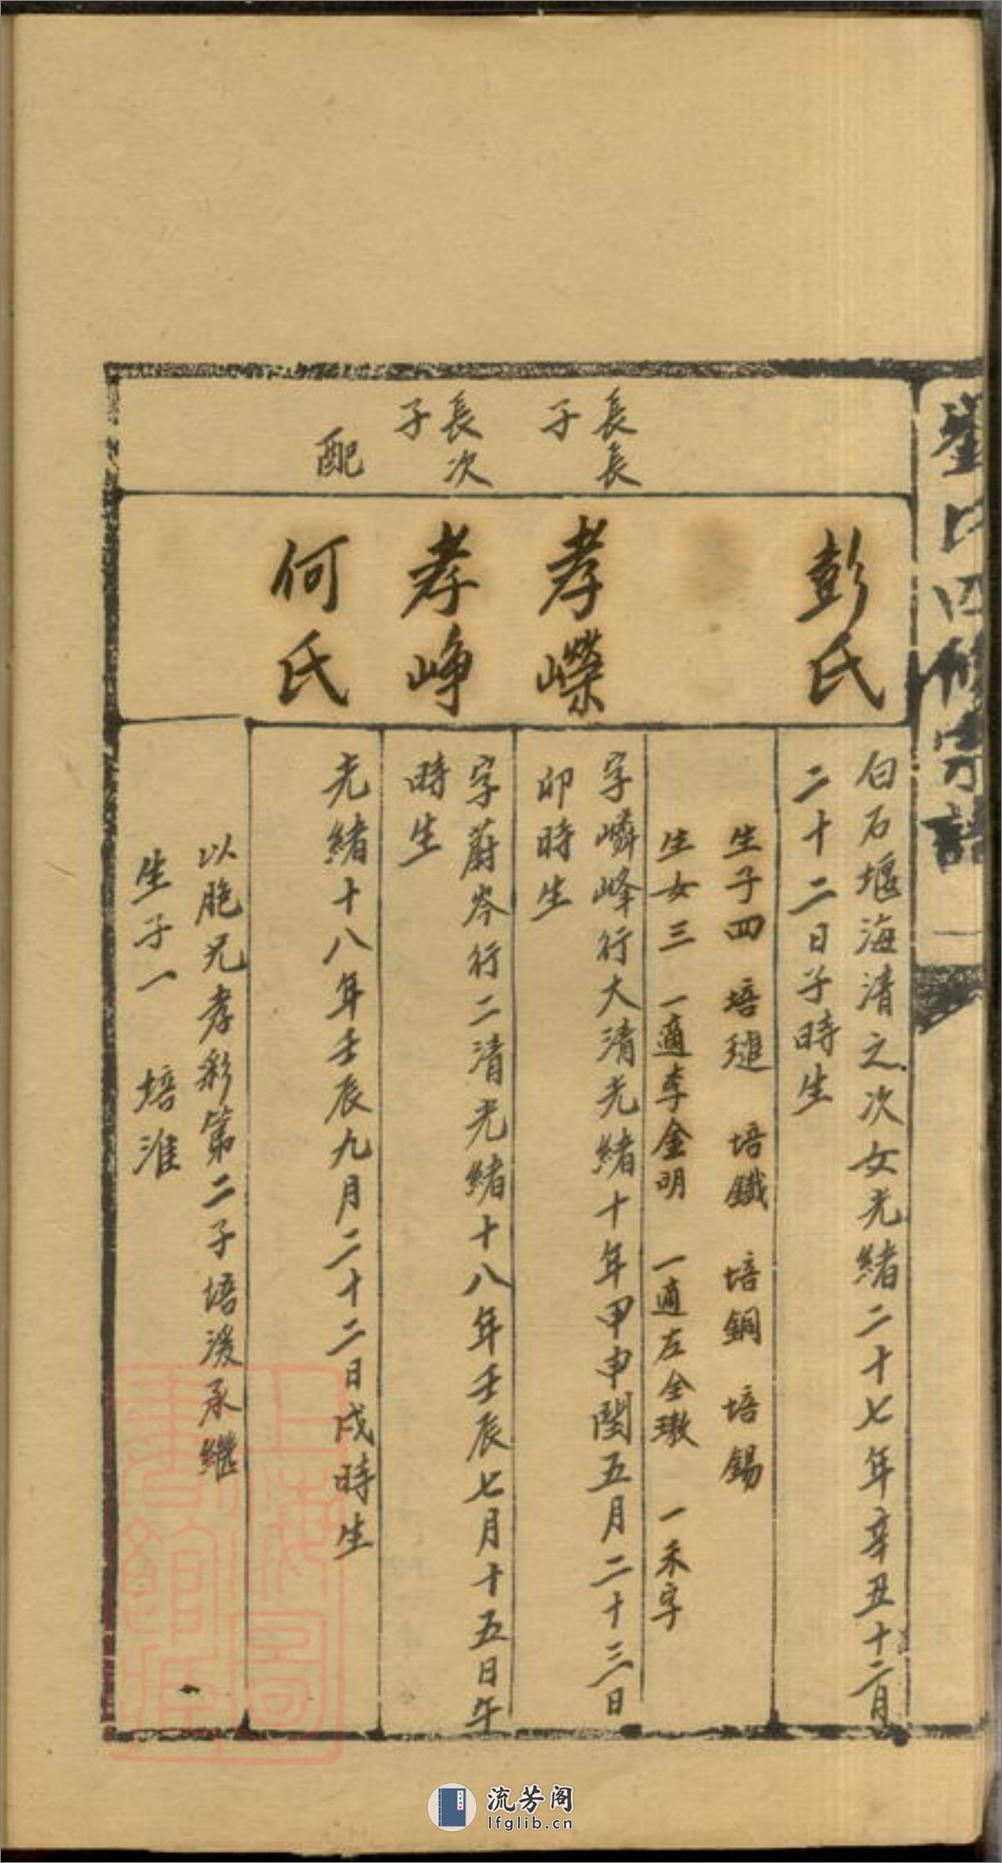 氏四修宗譜 一
彭氏
白石堰海清之次女光緒二十七年辛丑十二月
二十二日子時生
生子四 培 培鐵 培銅 培錫
生女三 一適李金明 一適左全璈 一未字
長長
子
孝嶸
字嶙峰行大清光緒十年甲申閏五月二十三日
卯時生
長次
子
孝峥
字蔚岑行二清光緒十八年壬辰七月十五日午
時生
配
何氏
光緒十八年壬辰九月二十二日戌時生
以胞兄孝彩第二子培湲承繼
生子一 培淮
上海圖
書館藏
流芳阁
lfglib.cn